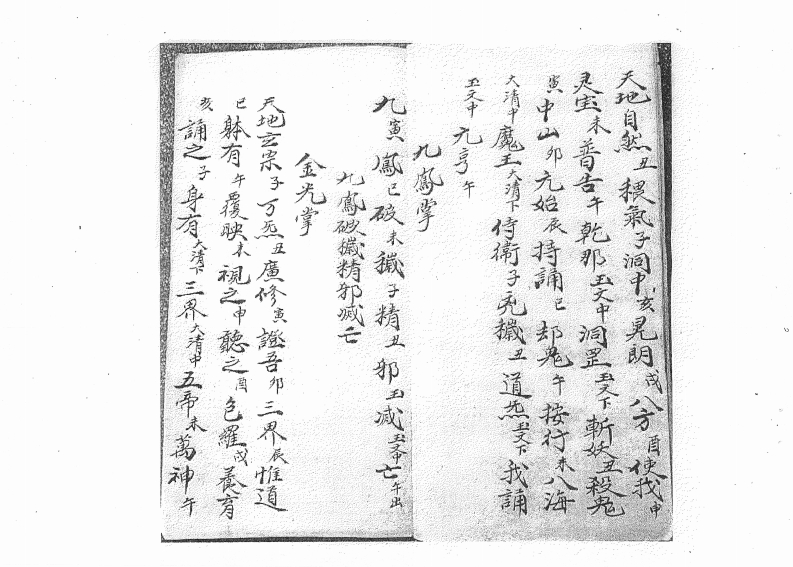 天地自然丑穢氣子洞中亥晃朗戌八方酉使我申
灵宝未普告午乾那玉文中洞罡玉文下斬妖丑殺鬼
寅中山卯元始辰持誦巳却鬼午按行未八海
大清中魔王大清下侍衛子兇穢丑道炁玉文下我誦
玉文中元亨午
九鳳掌
九寅鳳巳破未穢子精丑邪玉滅玉文中亡午出
九鳳破穢精邪滅亡
金光掌
天地玄宗子万炁丑廣修寅證吾卯三界辰惟道
巳躰有午覆映未視之申聽之酉包羅戌養育
亥誦之子身有大清下三界大清中五帝未萬神午